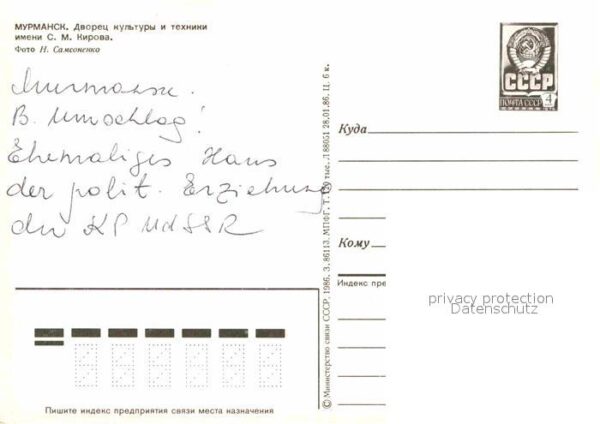 МУРМАНСК. Дворец культуры и техники
имени С. М. Кирова.
Фото Н. Самсоненко
Murmansk.
B. Umschlag!
Ehemaliges Haus
der polit. Erziehung
der KP UdSSR
СССР
ПОЧТА СССР 4
Куда
Кому
Индекс пре
privacy protection
Datenschutz
© Министерство связи СССР, 1986. З. 86113. МПФГ. Т. 129 тыс. Л 88051 28.01.86. Ц. 6 к.
Пишите индекс предприятия связи места назначения